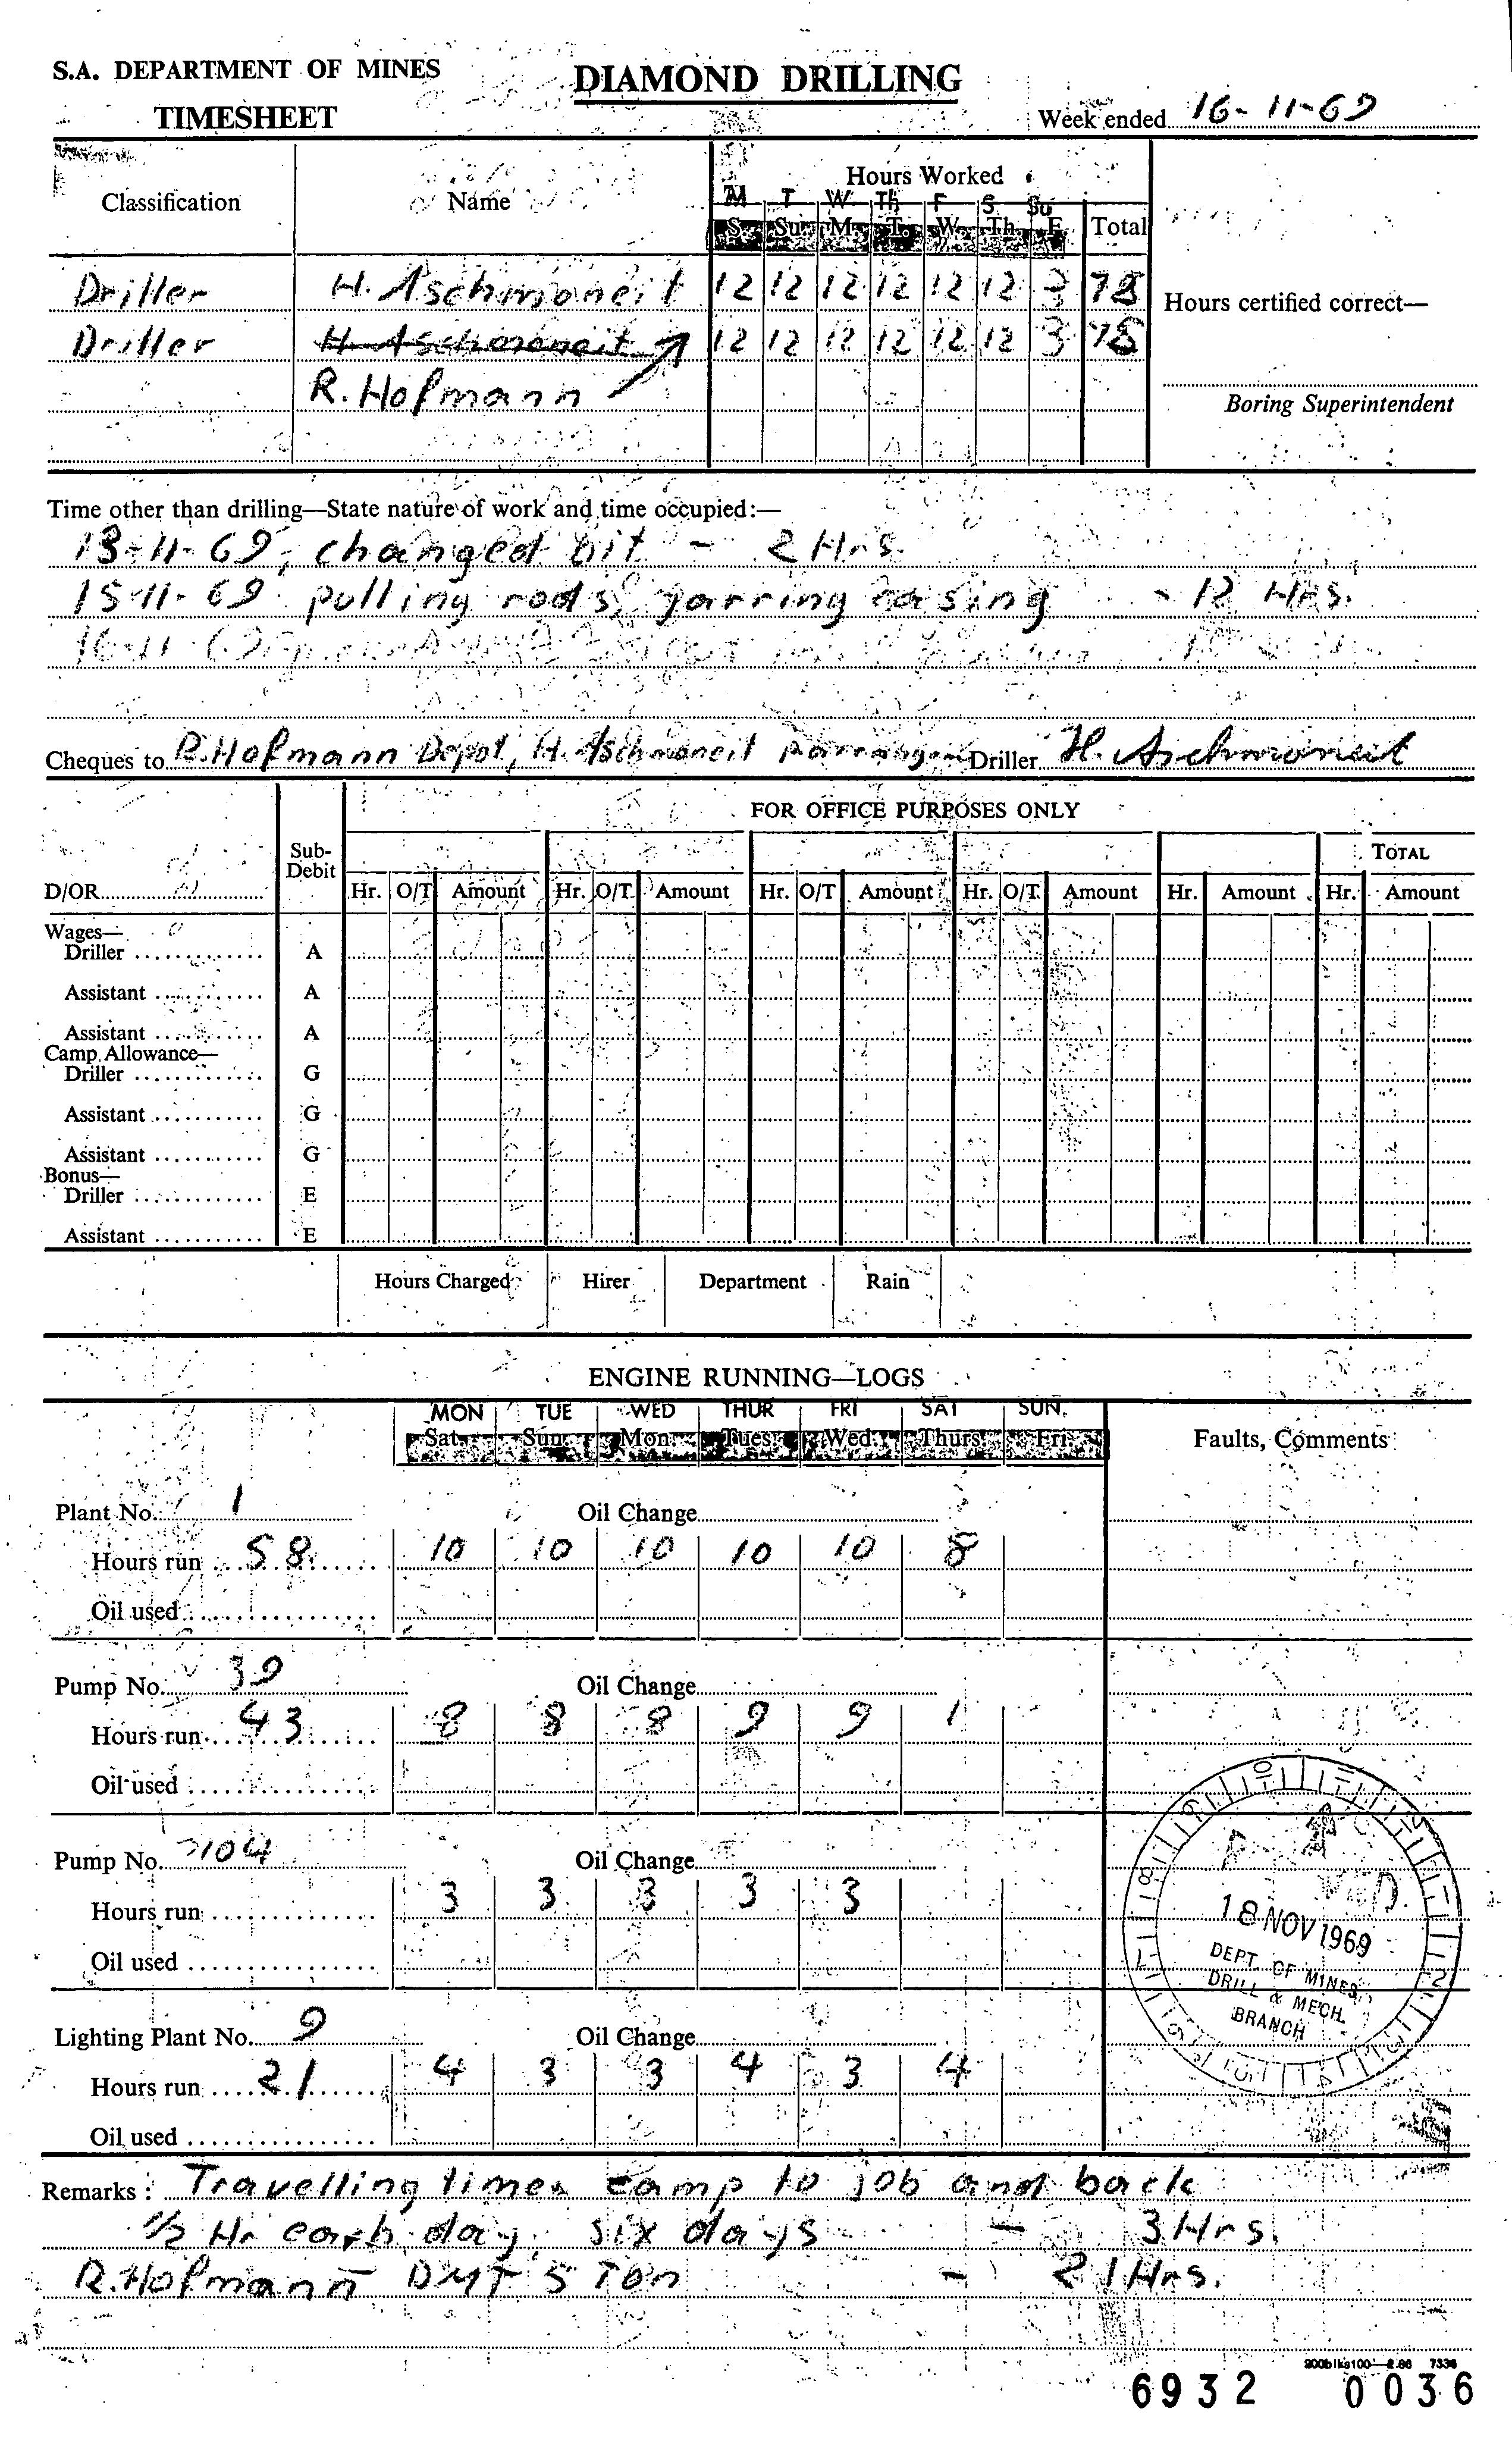 S.A. DEPARTMENT OF MINES
DIAMOND DRILLING
TIMESHEET
Week ended 16-11-69
Classification Name Hours Worked
M T W Th F S Su
S. Su. M. T. W. Th. F. Total
Driller H. Aschmoneit 12 12 12 12 12 12 3 78
Hours certified correct—
Driller H. Aschmoneit 12 12 12 12 12 12 3 78
R. Hofmann
Boring Superintendent
Time other than drilling—State nature of work and time occupied:—
13-11-69, changed bit - 2 Hrs.
15-11-69 pulling rods, jarring casing - 12 Hrs.
16-11-69
Cheques to R. Hofmann Depot, H. Aschmoneit Driller H. Aschmoneit
FOR OFFICE PURPOSES ONLY
Sub-Debit TOTAL
D/OR Hr. O/T Amount Hr. O/T. Amount Hr. O/T Amount Hr. O/T. Amount Hr. Amount Hr. Amount
Wages—
Driller A
Assistant A
Assistant A
Camp Allowance—
Driller G
Assistant G
Assistant G
Bonus—
Driller E
Assistant E
Hours Charged Hirer Department Rain
ENGINE RUNNING—LOGS
MON TUE WED THUR FRI SAT SUN.
Sat. Sun. Mon. Tues. Wed. Thurs. Fri. Faults, Comments
Plant No. 1 Oil Change
Hours run 58 10 10 10 10 10 8
Oil used
Pump No. 39 Oil Change
Hours run 43 8 8 8 9 9 1
Oil used
Pump No. 104 Oil Change
Hours run 3 3 3 3 3
Oil used
Lighting Plant No. 9 Oil Change
Hours run 21 4 3 3 4 3 4
Oil used
18 NOV 1969
DEPT. OF MINES
DRILL & MECH.
BRANCH
Remarks: Travelling times camp to job and back
1/2 Hr each day, six days - 3 Hrs.
R. Hofmann DMT 5 Ton - 21 Hrs.
900blks100—2.66 7336
6932 0036